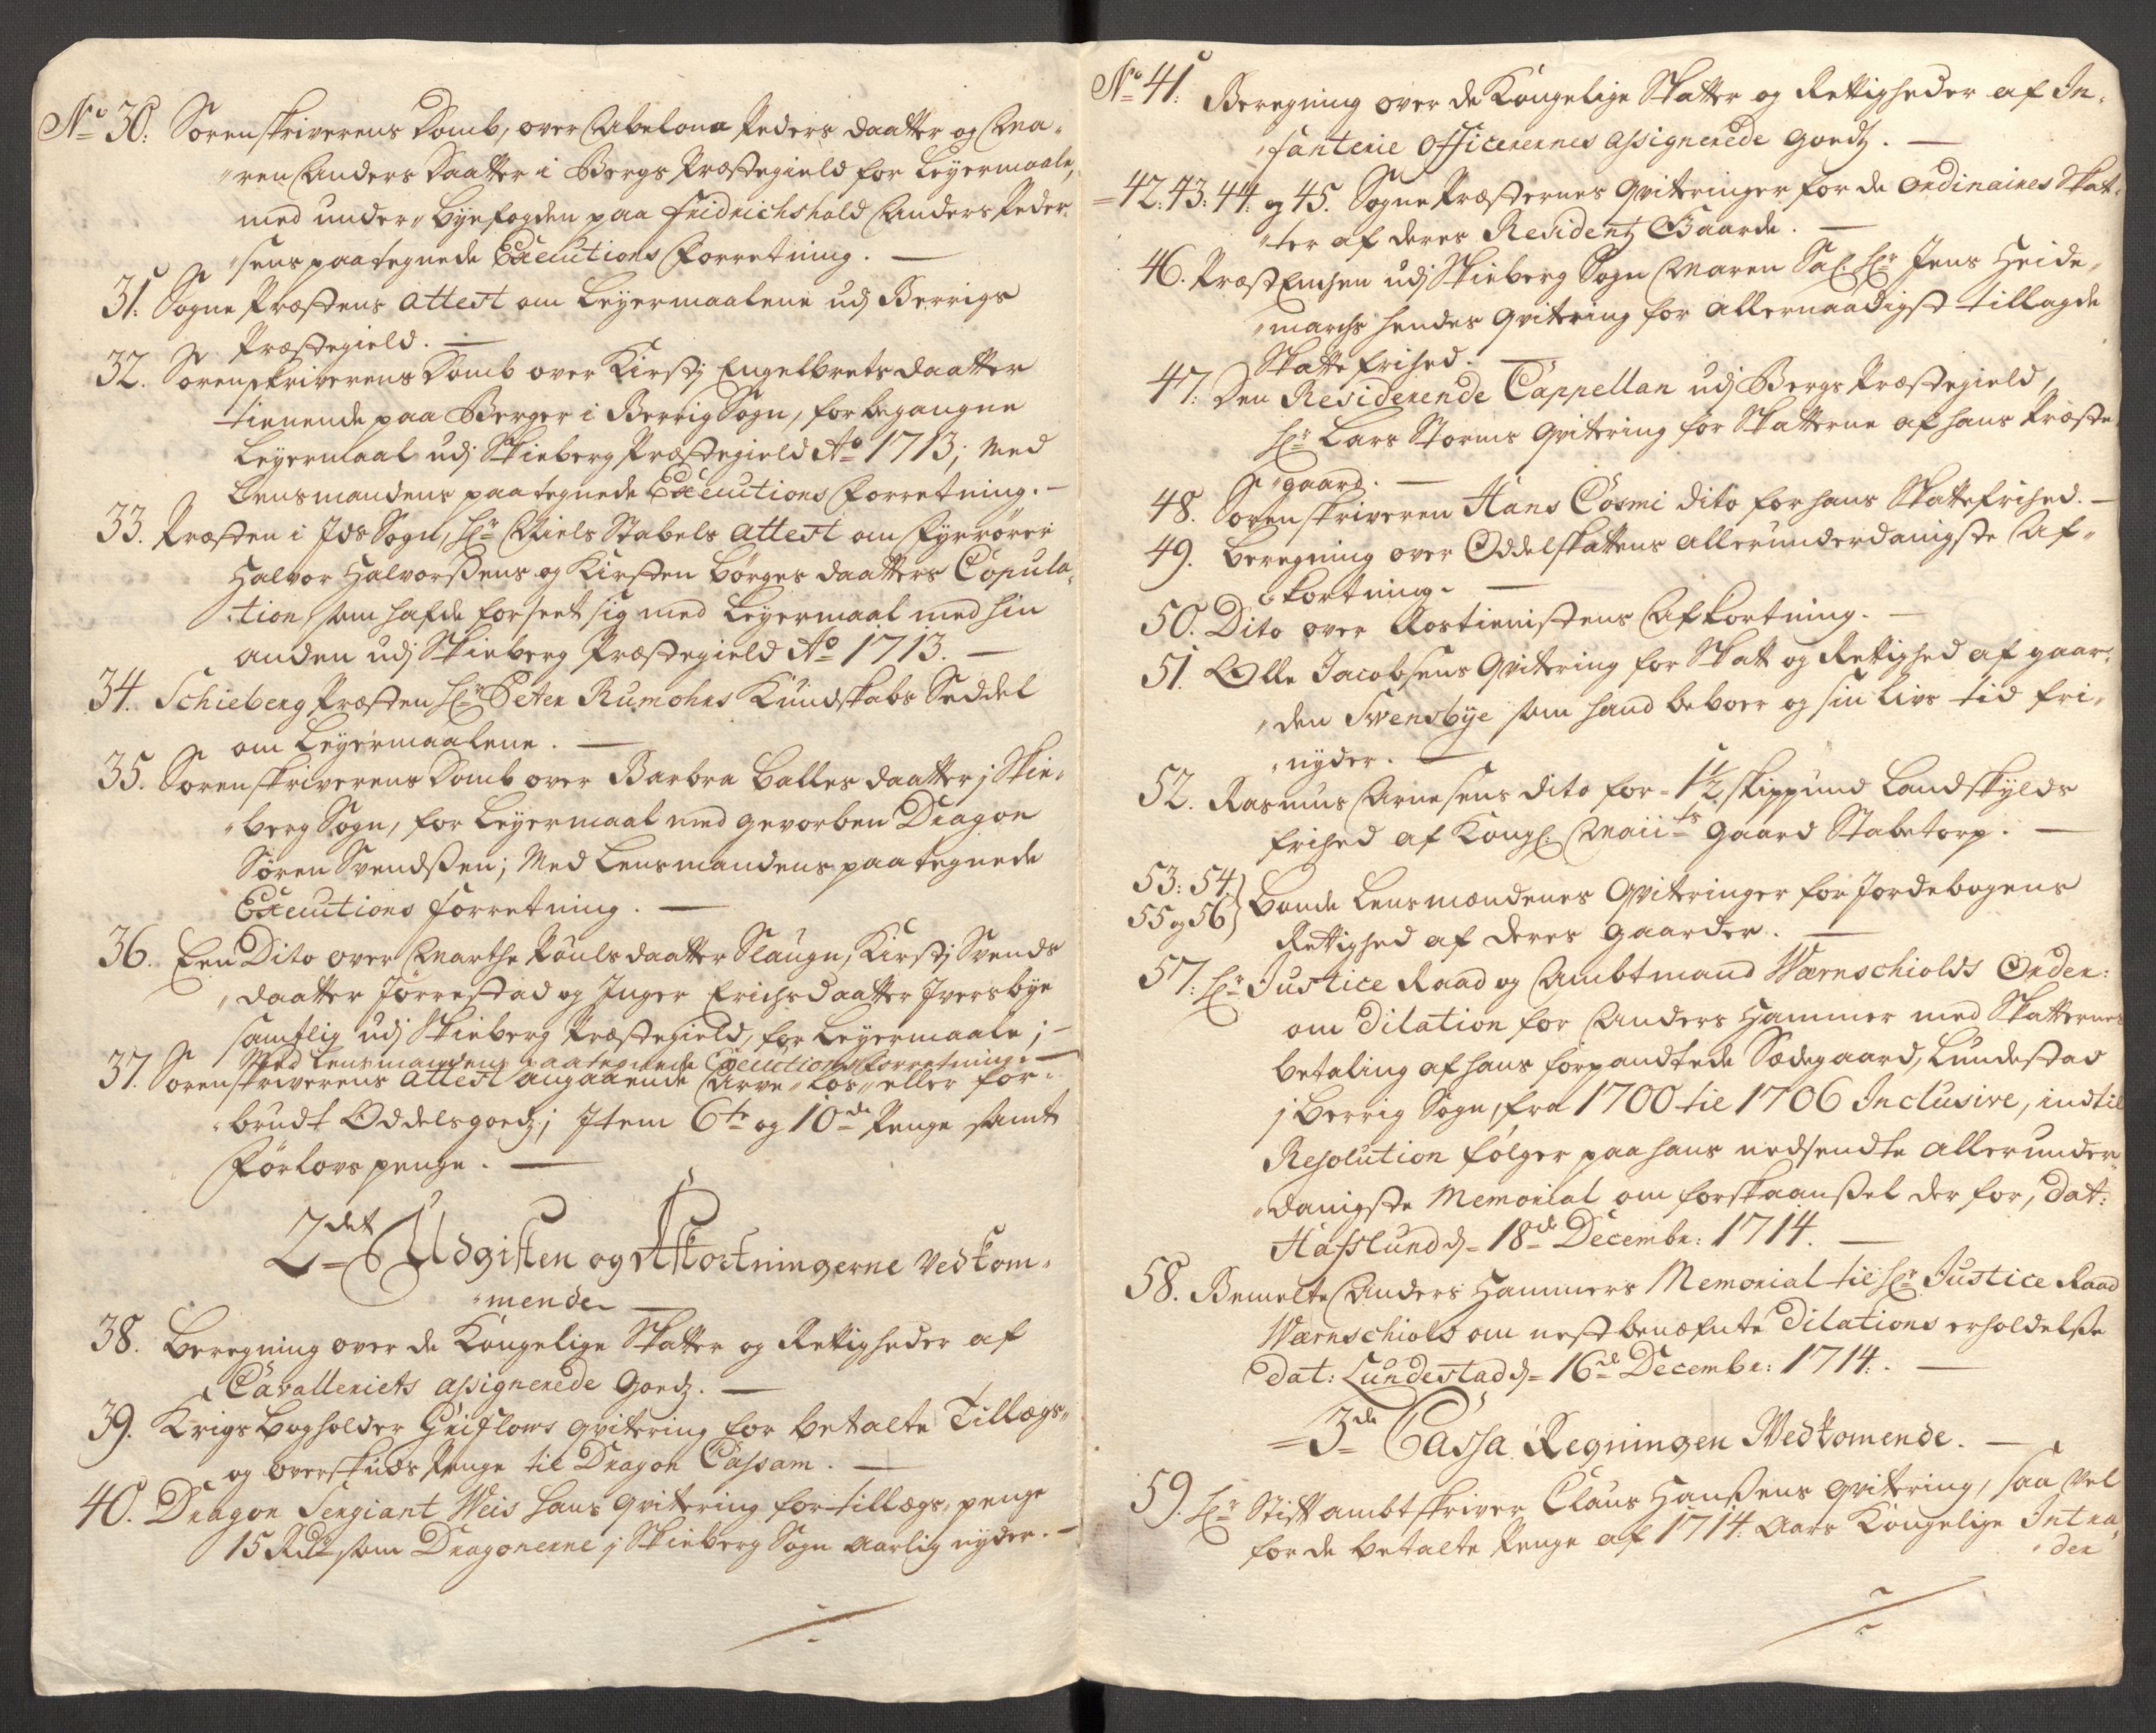 No 30: Sorenskriverens Domb, over Abelona Peders daatter og Ma-
ren Anders Daatter i Bergs Præstegield for Leyermaale,
med under-Byefogden paa Fridrichshald Anders Peder-
sens paategnede Executions Forretning. —
31. Sogne Præstens Attest om Leyermaalene udj Berrigs
Præstegield. —
32. Sorenskriverens Domb over Kirstj Engelbrets daatter
tienende paa Berger i Berrig Sogn, for begangne
Leyermaal udj Skieberg Præstegield Ao 1713; Med
Lensmandens paategnede Executions Forretning. —
33. Præsten i Ids Sogn, Hr Niels Stabels Attest om Fyrrører
Halvor Halvorssens og Kirsten Børges daatters Copula-
tion, som hafde forseet sig med Leyermaal med hin
anden udj Skieberg Præstegield Ao 1713. —
34. Schieberg Præsten Hr Peter Rumohrs Kundskabs Seddel
om Leyermaalene. —
35. Sorenskriverens Domb over Barbra Halles daatter j Skie-
berg Sogn, for Leyermaal med gevorben Dragon
Søren Svendssen; Med Lensmandens paategnede
Executions forretning. —
36. Een Dito over Marthe Poulsdaatter Slaugn, Kirstj Svends
daatter Jørrestad og Inger Erichsdaatter Iversbye
samtlig udj Skieberg Præstegield, for Leyermaale; —
Med Lensmandens paategnede Executions forretning. —
37. Sorenskriverens Attest angaaende Arve-løs- eller for-
brudt Oddelsgoedz; Item 6te og 10de Penge samt
Førlovs penge. —
2det Udgiften og Afkortningerne Vedkom-
mende —
38. Beregning over de Kongelige Skatter og Rettigheder af
Cavalleriets assignerede Goedz. —
39. Krigs Bogholder Griflows qvitering for betalte Tillægs-
og overskuds Penge til Dragon Cassam. —
40. Dragon Sergiant Weis Hans Qvitering for tillægs-penge
15 Rdr som Dragonerne j Skieberg Sogn aarlig nyder. —
No 41. Beregning over de Kongelige Skatter og Rettigheder af In-
fanterie Officerernes assignerede goedz. —
42. 43: 44: og 45. Sogne Præsternes Qviteringer for de Ordinaires Skat-
ter af deres Residentz Gaarde. —
46. Præst Enchen udj Skieberg Sogn Maren Sal. Hr Jens Heide-
marchs hendes qvitering for allernaadigst tillagde
Skatte frihed. —
47. Den Residerende Cappellan udj Bergs Præstegield,
Hr Lars Storms Qvitering for Skatterne af hans Præste
gaard. —
48. Sorenskriveren Hans Cosmi dito for hans Skattefrihed. —
49. Beregning over Oddelskattens allerunderdanigste Af-
kortning. —
50. Dito over Rostienistens Afkortning. —
51. Olle Jacobsens Qvitering for Skatt og Rettighed af gaar-
den Svensbye som hand beboer og sin Livs tid fri-
nyder. —
52. Rasmus Arnesens dito for 1½ skippund Landskylds
frihed af Kongl. Maiits gaard Stabetorp. —
53: 54:
55 og 56 } Bonde Lensmændenes Qviteringer for Jordebogens
Rettighed af deres gaarder. —
57. Hr Justice Raad og Ambtmand Wærnschiolds Orden:
om Dilation for Anders Hammer med Skatternes
betaling af hans forpandtede Sædegaard, Lundestad
j Berrig Sogn, fra 1700 til 1706 Inclusive, indtil
Resolution følger paa hans nedsendte allerunder-
danigste Memorial om forskaanssel der for, dat:
Hafslund d. 18de Decembr: 1714. —
58. Bemelte Anders Hammers Memorial til Hr Justice Raad
Wærnschiold om nest benæfnte Dilations erholdelsse
dat: Lundestad d. 16de Decembr: 1714. —
3de Cassa Regningen Vedkomende. —
59. Hr Stiftambtskriver Claus Hanssens qvitering, saa vel
for de betalte Penge af 1714. Aars Kongelige Intra-
der